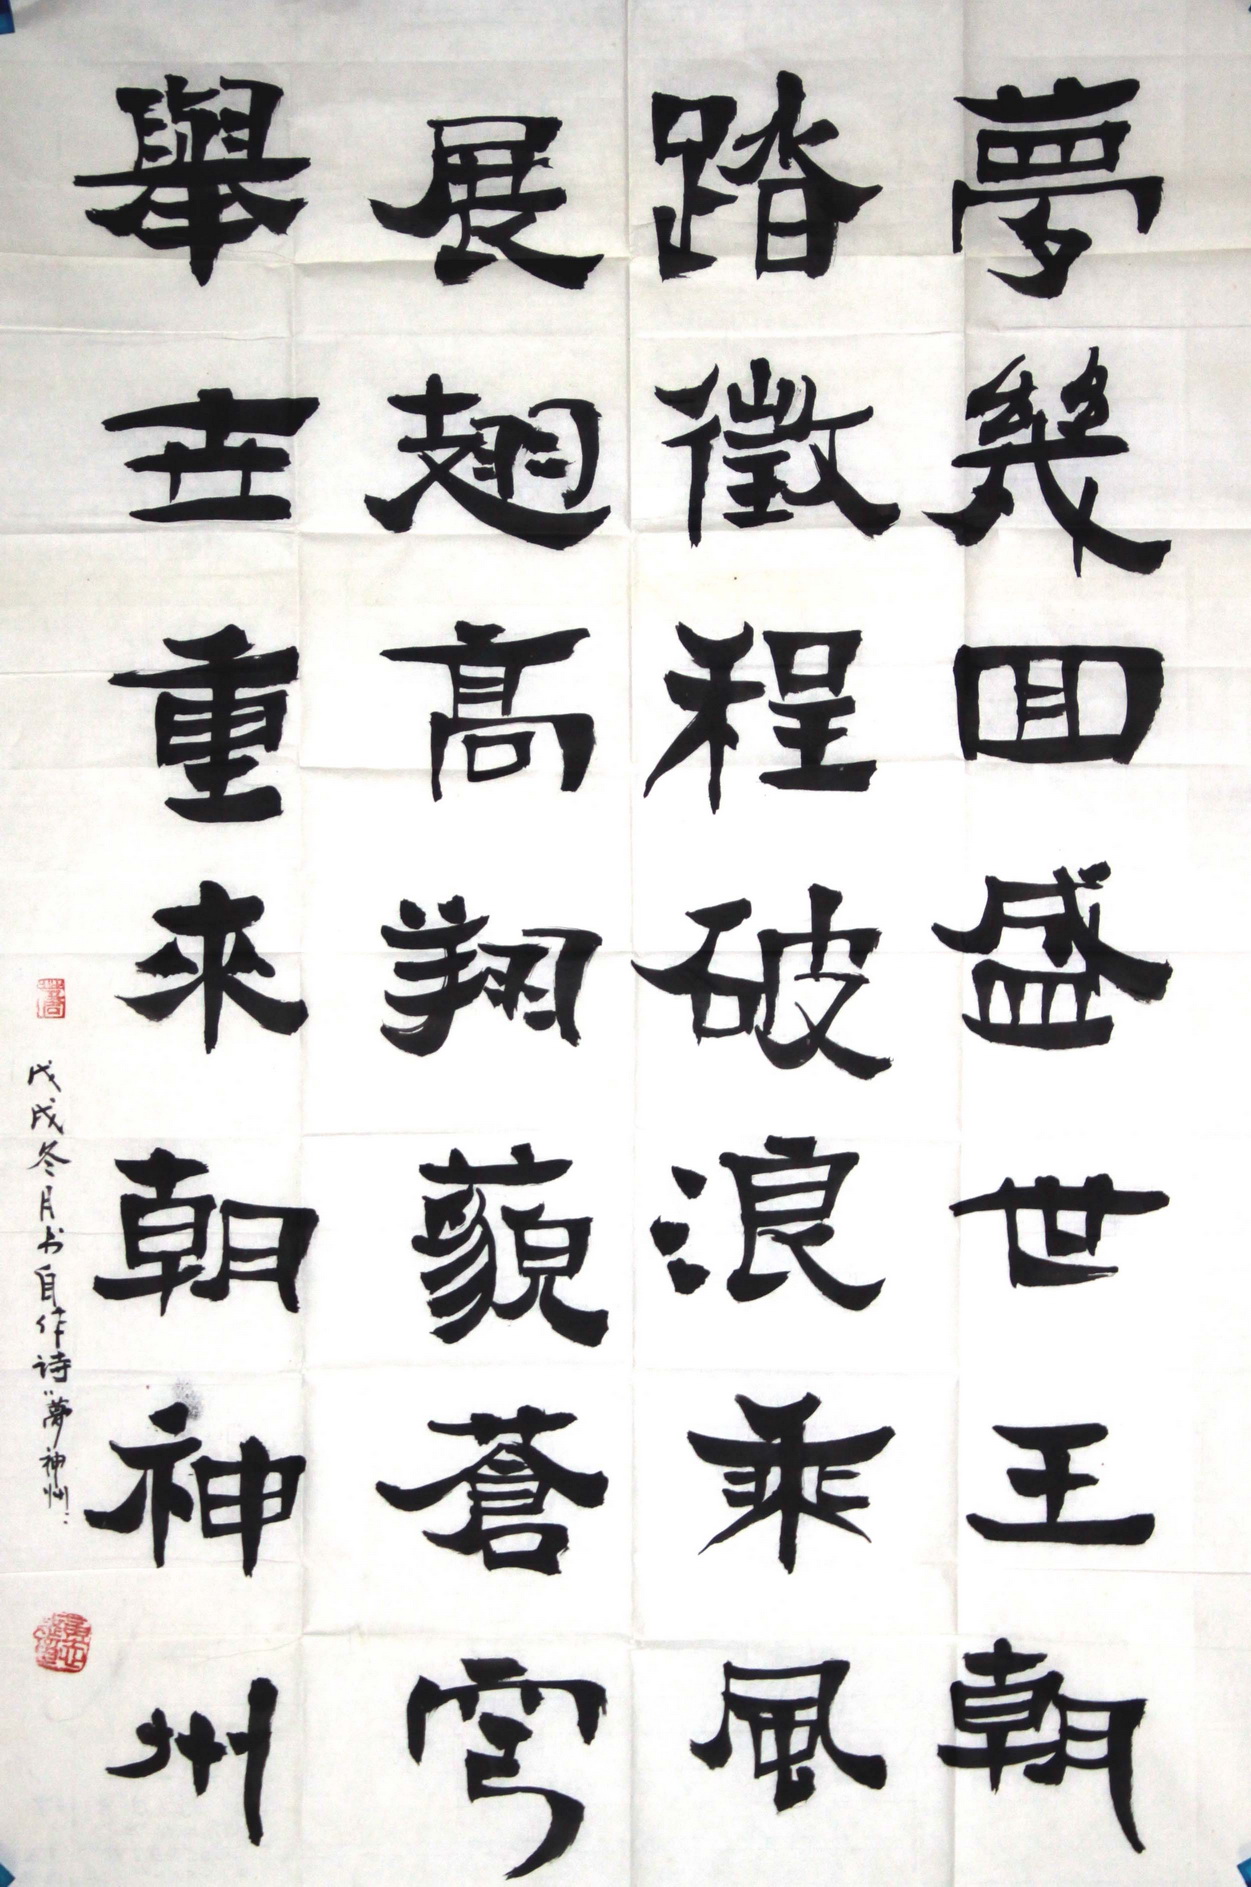 夢幾回盛世王朝
踏徵程破浪乘風
展翅高翔藐蒼穹
舉世重來朝神州
戊戌冬月书自作诗“夢神州”